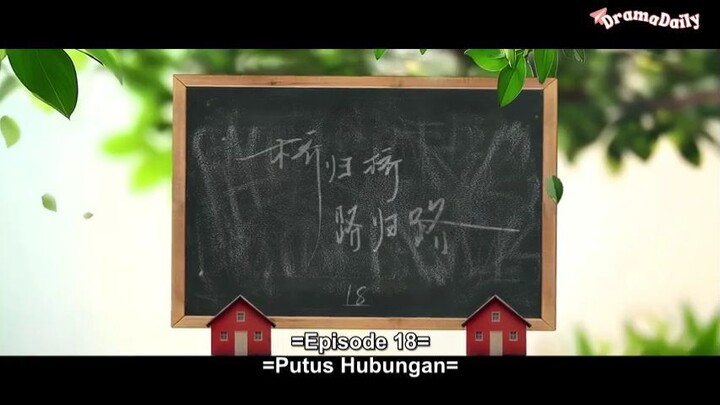 DramaDaily
桥归桥
路归路
18
=Episode 18=
=Putus Hubungan=